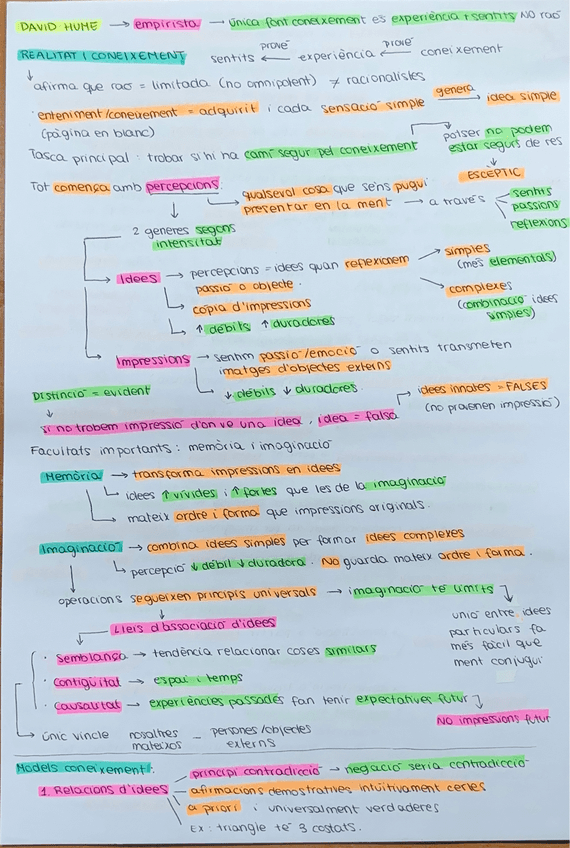 DAVID HUME → empirista → única font coneixement és experiència + sentits NO raó
REALITAT I CONEIXEMENT sentits ← prové experiència ← prové coneixement
afirma que raó = limitada (no omnipotent) ≠ racionalistes
enteniment/coneixement = adquirit i cada sensació simple genera → idea simple
(pàgina en blanc)
Tasca principal: trobar si hi ha camí segur pel coneixement
potser no podem
estar segurs de res
ESCÈPTIC
Tot comença amb percepcions.
qualsevol cosa que se'ns pugui
presentar en la ment → a través
sentits
passions
reflexions
2 gèneres segons
intensitat
Idees → percepcions = idees quan reflexionem
passió o objecte.
còpia d'impressions
↑ dèbils ↑ duradores
simples
(més elementals)
complexes
(combinació idees
simples)
Impressions → sentim passió/emoció o sentits transmeten
imatges d'objectes externs
↓ dèbils ↓ duradores.
Distinció = evident
si no trobem impressió d'on ve una idea, idea = falsa
idees innates = FALSES
(no provenen impressió)
Facultats importants: memòria i imaginació
Memòria → transforma impressions en idees
idees ↑ vívides i ↑ fortes que les de la imaginació
mateix ordre i forma que impressions originals.
Imaginació → combina idees simples per formar idees complexes
percepció ↓ dèbil ↓ duradora. No guarda mateix ordre i forma.
operacions segueixen principis universals → imaginació té límits
unió entre idees
particulars fa
més fàcil que
ment conjugui
Lleis d'associació d'idees
· Semblança → tendència relacionar coses similars
· Contigüitat → espai i temps
· Causalitat → experiències passades fan tenir expectatives futur
NO impressions futur
únic vincle nosaltres mateixos – persones/objectes externs
Models coneixement:
1. Relacions d'idees
principi contradicció → negació seria contradicció
afirmacions demostratives intuïtivament certes
a priori i universalment verdaderes
EX: triangle té 3 costats.